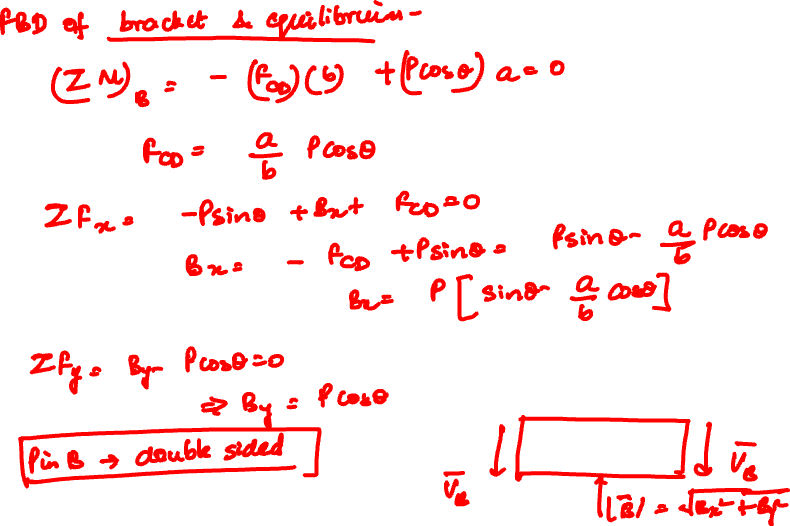 FBD of bracket & equilibrium -
(ΣM)_B = - (F_CD)(b) + (P cosθ) a = 0
F_CD = a/b P cosθ
ΣF_x = -P sinθ + B_x + F_CD = 0
B_x = - F_CD + P sinθ = P sinθ - a/b P cosθ
B_x = P [ sinθ - a/b cosθ ]
ΣF_y = B_y - P cosθ = 0
⇒ B_y = P cosθ
Pin B → double sided
V̄_B
V̄_B
|B̄| = √(B_x² + B_y²)